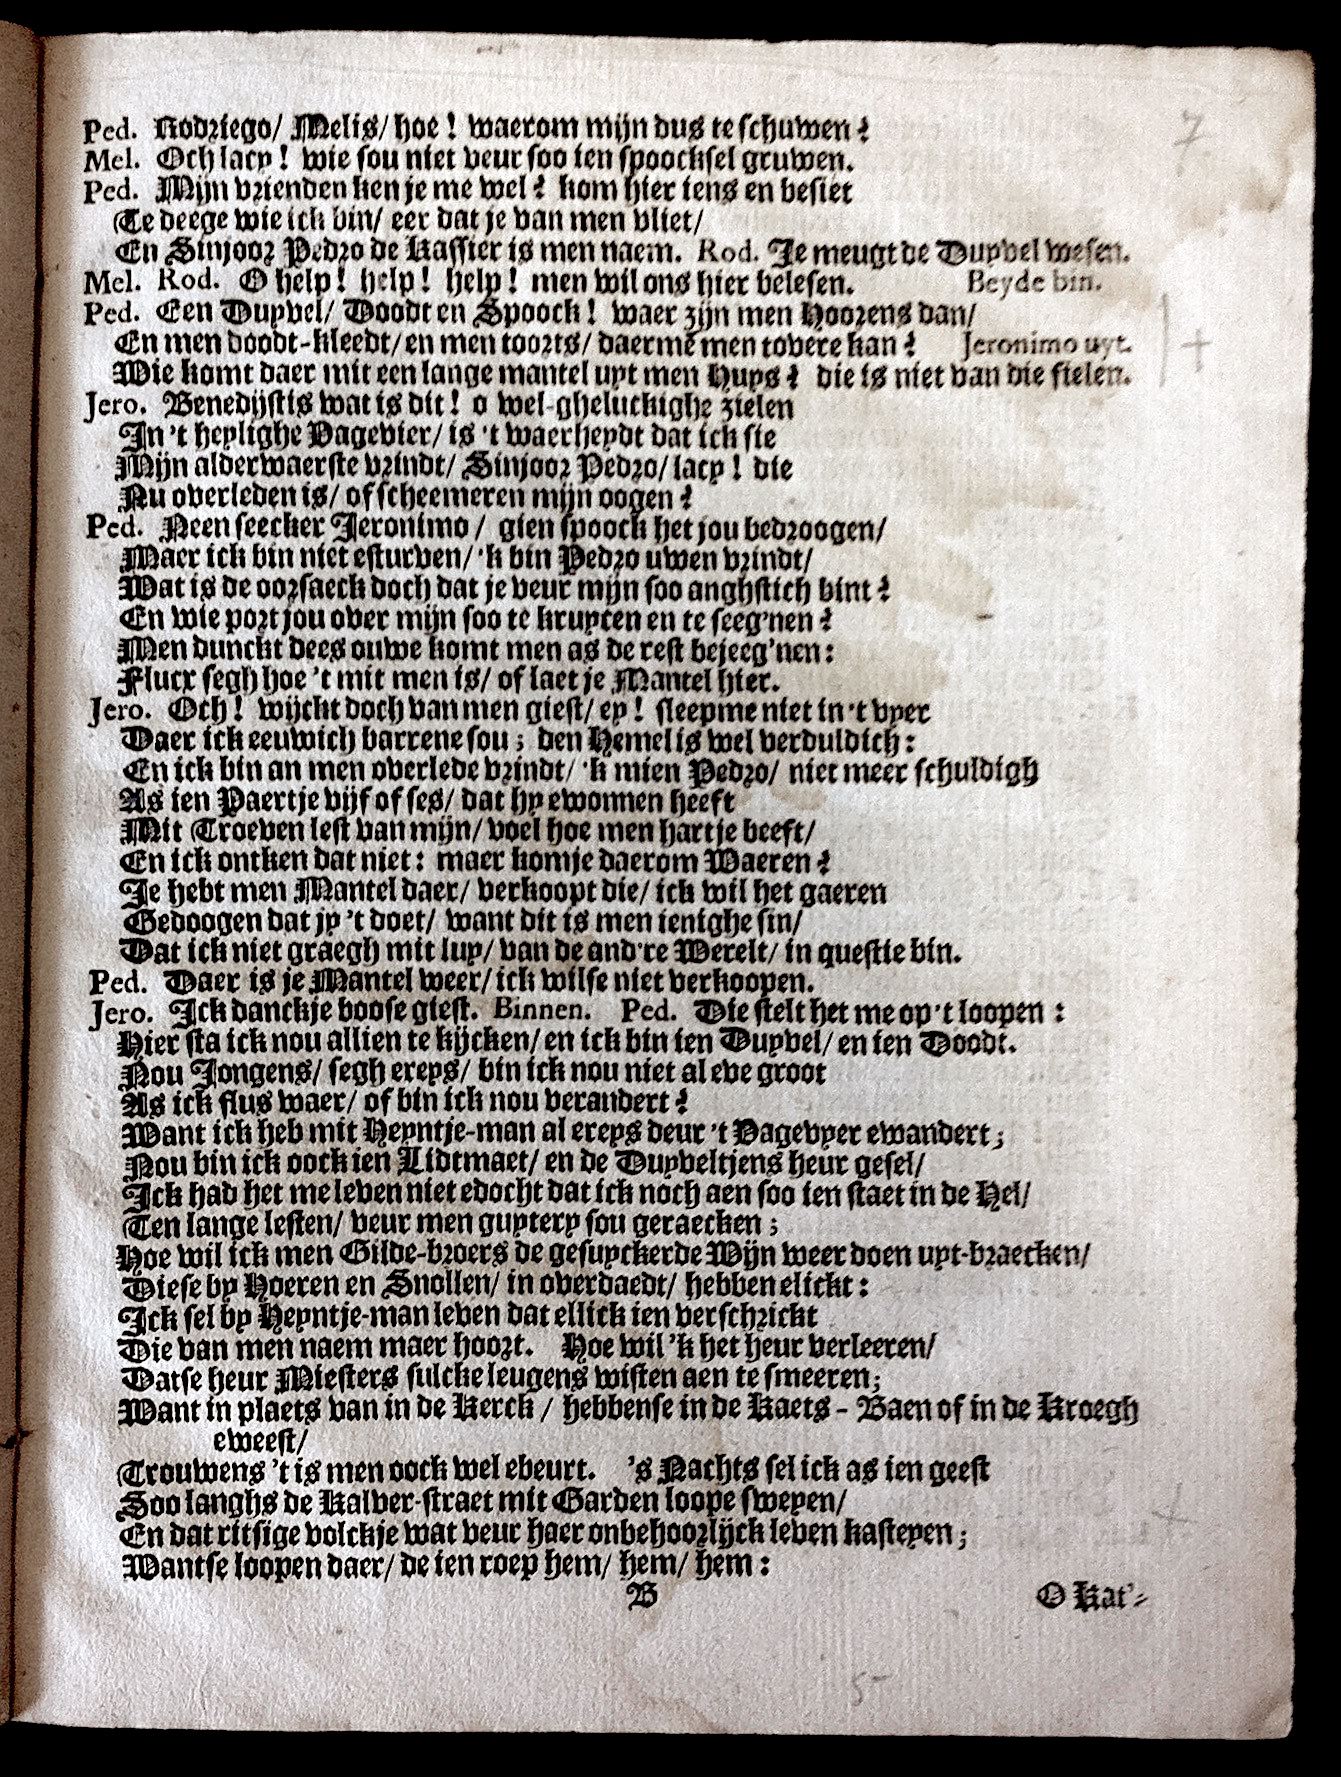 7
Ped. Rodriego/ Melis/ hoe! waerom mijn dus te schuwen?
Mel. Och lacy! wie sou niet veur soo ien spoocksel gruwen.
Ped. Mijn vrienden ken je me wel? kom hier iens en besiet
Te deege wie ick bin/ eer dat je van men vliet/
En Sinjoor Pedro de Kassier is men naem. Rod. Je meugt de Duyvel wesen.
Mel. Rod. O help! help! help! men wil ons hier belesen. Beyde bin.
Ped. Een Duyvel/ Doodt en Spoock! waer zijn men Hoorens dan/
En men doodt-kleedt/ en men toorts/ daermê men tovere kan? Jeronimo uyt.
Wie komt daer mit een lange mantel uyt men Huys? die is niet van die fielen.
Jero. Benedijstis wat is dit! o wel-gheluckighe zielen
In 't heylighe Vagevier/ is 't waerheydt dat ick sie
Mijn alderwaerste vrindt/ Sinjoor Pedro/ lacy! die
Nu overleden is/ of scheemeren mijn oogen?
Ped. Neen seecker Jeronimo/ gien spoock het jou bedroogen/
Maer ick bin niet esturven/ 'k bin Pedro uwen vrindt/
Wat is de oorsaeck doch dat je veur mijn soo anghstich bint?
En wie port jou over mijn soo te kruycen en te seeg'nen?
Men dunckt dees ouwe komt men as de rest bejeeg'nen:
Flucx segh hoe 't mit men is/ of laet je Mantel hier.
Jero. Och! wijckt doch van men giest/ ey! sleepme niet in 't vyer
Daer ick eeuwich barrene sou; den Hemel is wel verduldich:
En ick bin an men overlede vrindt/ 'k mien Pedro/ niet meer schuldigh
As ien Paertje vijf of ses/ dat hy ewonnen heeft
Mit Troeven lest van mijn/ voel hoe men hartje beeft/
En ick ontken dat niet: maer komje daerom Waeren?
Je hebt men Mantel daer/ verkoopt die/ ick wil het gaeren
Gedoogen dat jy 't doet/ want dit is men ienighe sin/
Dat ick niet graegh mit luy/ van de and're Werelt/ in questie bin.
Ped. Daer is je Mantel weer/ ick wilse niet verkoopen.
Jero. Ick danckje boose giest. Binnen. Ped. Die stelt het me op 't loopen:
Hier sta ick nou allien te kijcken/ en ick bin ien Duyvel/ en ien Doodt.
Nou Jongens/ segh ereys/ bin ick nou niet al eve groot
As ick flus waer/ of bin ick nou verandert?
Want ick heb mit Heyntje-man al ereys deur 't Vagevyer ewandert;
Nou bin ick oock ien Lidtmaet/ en de Duyveltjens heur gesel/
Ick had het me leven niet edocht dat ick noch aen soo ien staet in de Hel/
Ten lange lesten/ veur men guytery sou geraecken;
Hoe wil ick men Gilde-broers de gesuyckerde Wijn weer doen uyt-braecken/
Diese by Hoeren en Snollen/ in overdaedt/ hebben elickt:
Ick sel by Heyntje-man leven dat ellick ien verschrickt
Die van men naem maer hoort. Hoe wil 'k het heur verleeren/
Datse heur Miesters sulcke leugens wisten aen te smeeren;
Want in plaets van in de Kerck/ hebbense in de Kaets-Baen of in de Kroegh
eweest/
Trouwens 't is men oock wel ebeurt. 's Nachts sel ick as ien geest
Soo langhs de Kalver-straet mit Garden loope sweyen/
En dat ritsige volckje wat veur haer onbehoorlijck leven kasteyen;
Wantse loopen daer/ de ien roep hem/ hem/ hem:
B O Kat'-
5